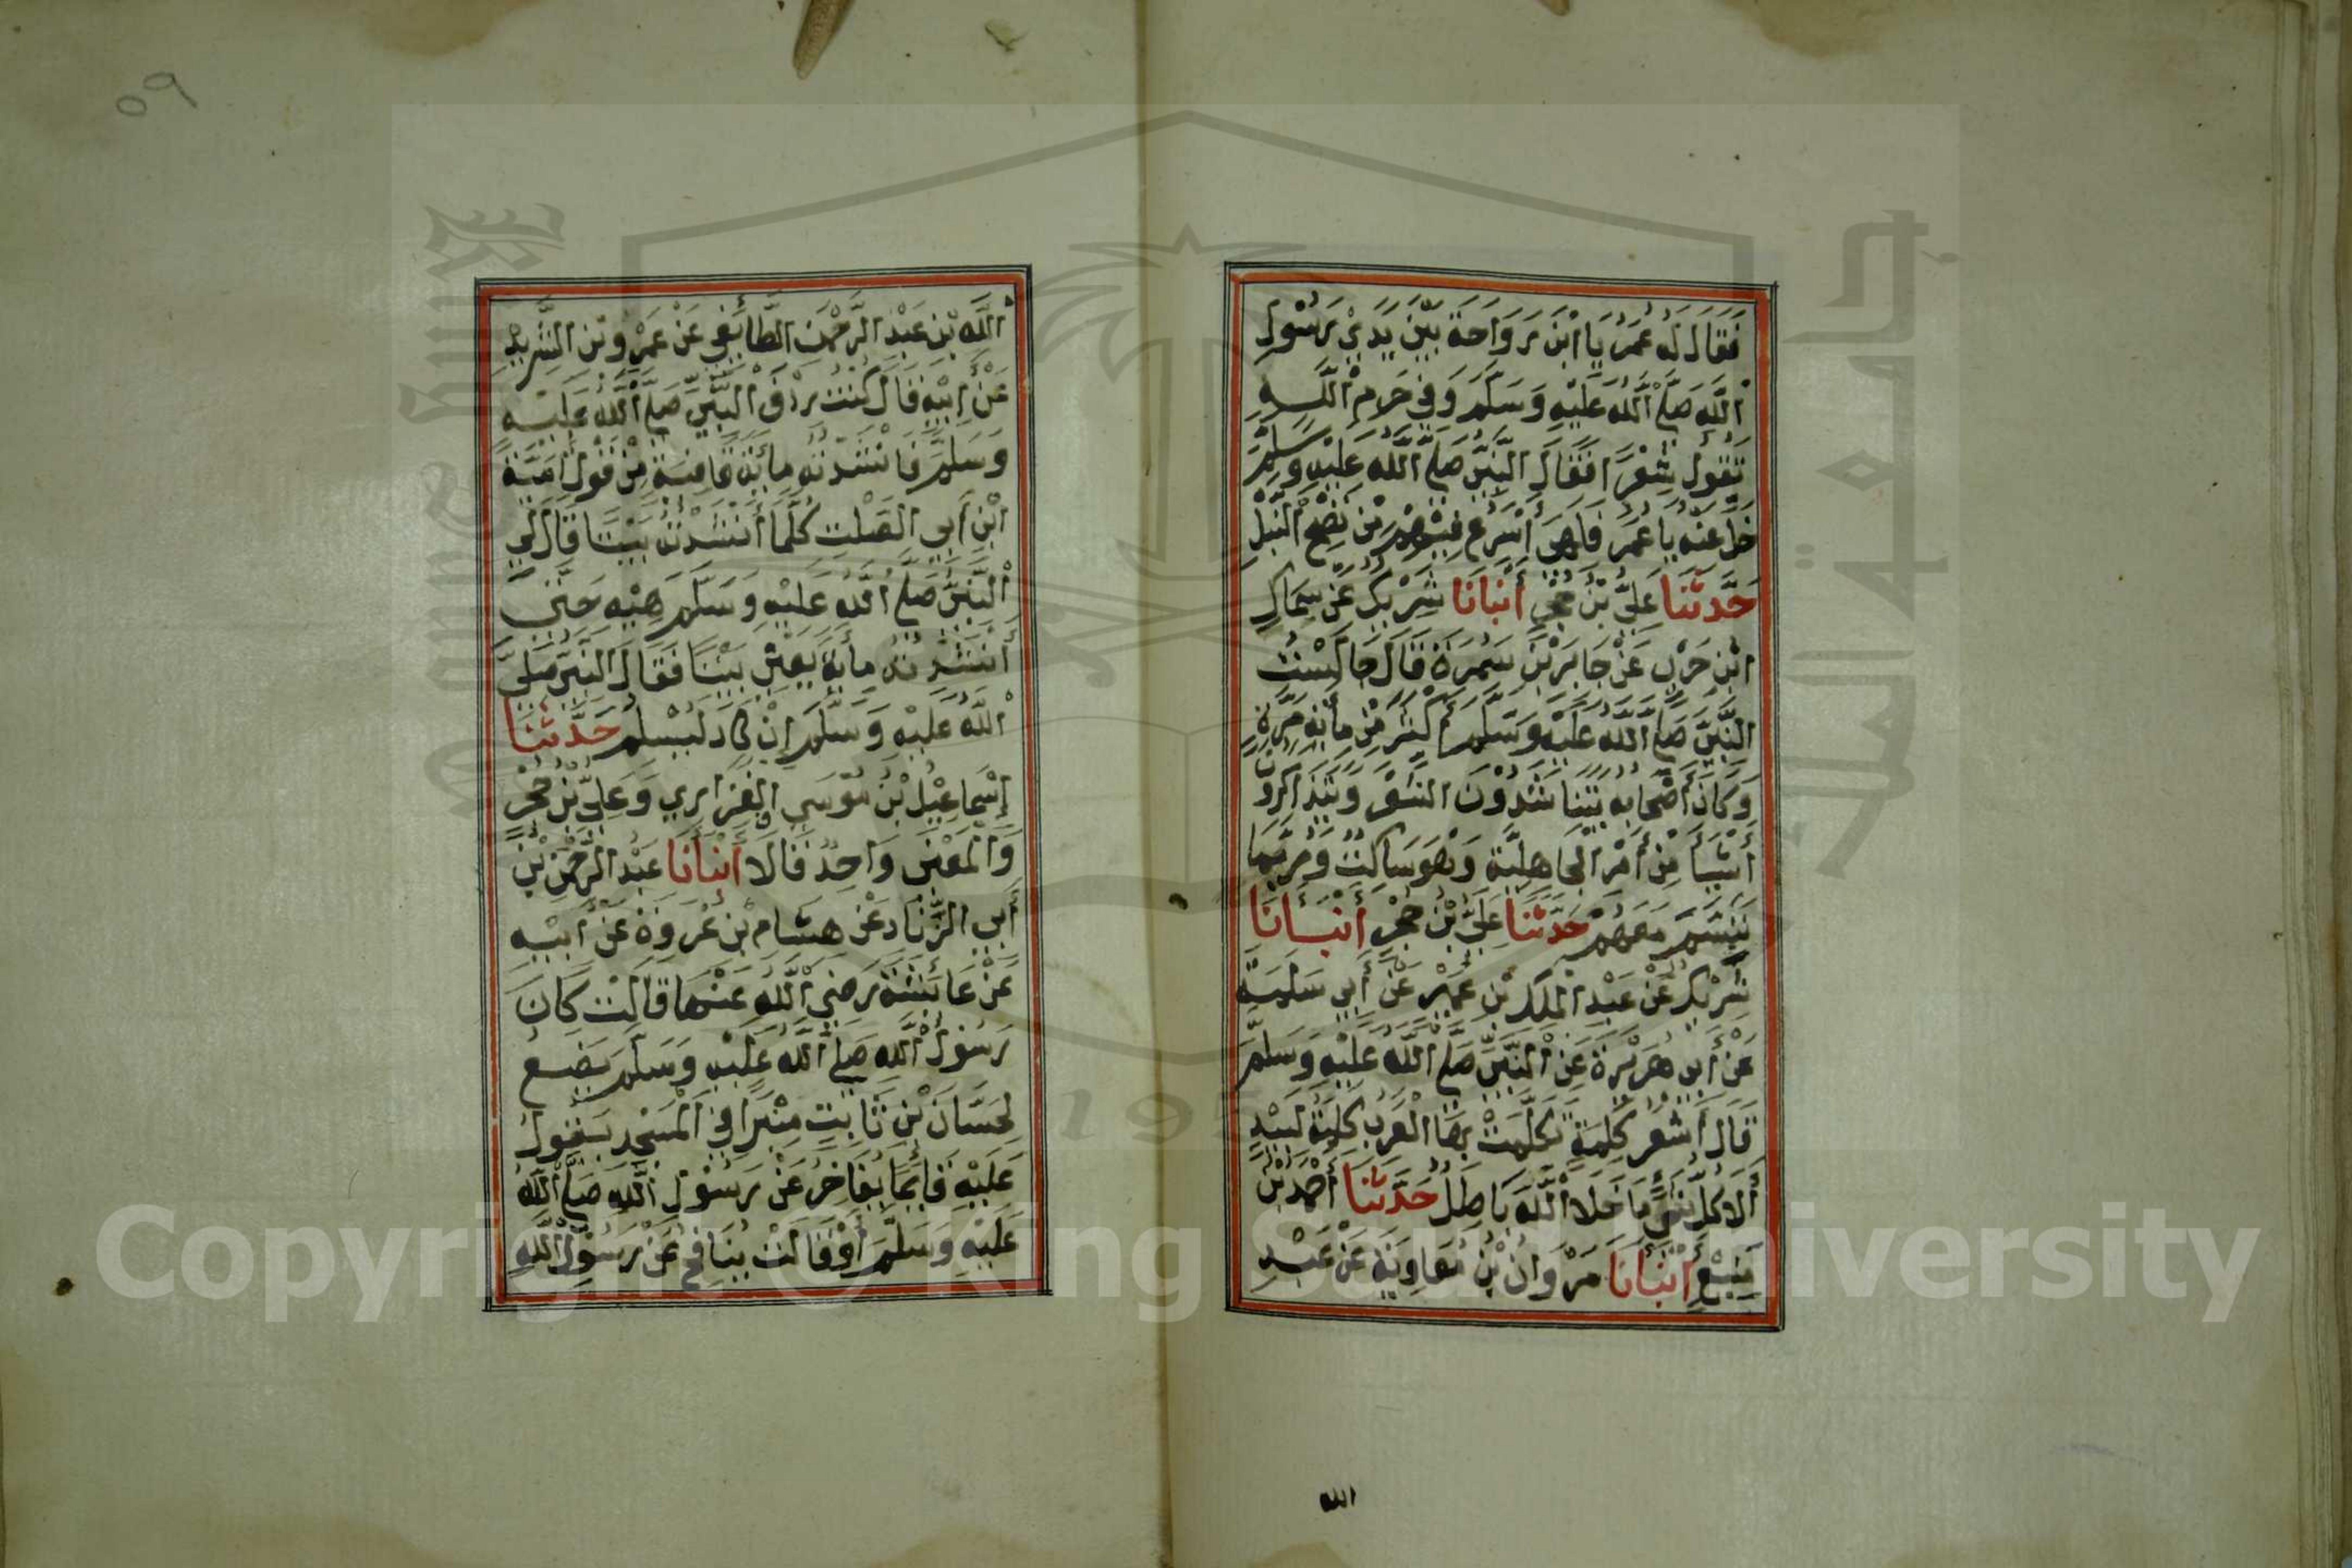 فَقَالَ لَهُ عُمَرُ يَا ابْنَ رَوَاحَةَ بَيْنَ يَدَيْ رَسُولِ
اللَّهِ صَلَّى اللَّهُ عَلَيْهِ وَسَلَّمَ وَفِي حَرَمِ اللَّهِ
تَقُولُ شِعْرًا فَقَالَ النَّبِيُّ صَلَّى اللَّهُ عَلَيْهِ وَسَلَّمَ
خَلِّ عَنْهُ يَا عُمَرُ فَلَهِيَ أَسْرَعُ فِيْهِمْ مِنْ نَضْحِ النَّبْلِ
حَدَّثَنَا عَلِيُّ بْنُ حُجْرٍ أَنْبَأَنَا شَرِيْكٌ عَنْ سِمَاكِ
ابْنِ حَرْبٍ عَنْ جَابِرِ بْنِ سَمُرَةَ قَالَ جَالَسْتُ
النَّبِيَّ صَلَّى اللَّهُ عَلَيْهِ وَسَلَّمَ أَكْثَرَ مِنْ مِائَةِ مَرَّةٍ
وَكَانَ أَصْحَابُهُ يَتَنَاشَدُوْنَ الشِّعْرَ وَيَتَذَاكَرُوْنَ
أَشْيَاءَ مِنْ أَمْرِ الْجَاهِلِيَّةِ وَهُوَ سَاكِتٌ وَرُبَّمَا
تَبَسَّمَ مَعَهُمْ حَدَّثَنَا عَلِيُّ بْنُ حُجْرٍ أَنْبَأَنَا
شَرِيْكٌ عَنْ عَبْدِ الْمَلِكِ بْنِ عُمَيْرٍ عَنْ أَبِي سَلَمَةَ
عَنْ أَبِي هُرَيْرَةَ عَنِ النَّبِيِّ صَلَّى اللَّهُ عَلَيْهِ وَسَلَّمَ
قَالَ أَشْعَرُ كَلِمَةٍ تَكَلَّمَتْ بِهَا الْعَرَبُ كَلِمَةُ لَبِيْدٍ
أَلَا كُلُّ شَيْءٍ مَا خَلَا اللَّهَ بَاطِلُ حَدَّثَنَا أَحْمَدُ بْنُ
مَنِيْعٍ أَنْبَأَنَا مَرْوَانُ بْنُ مُعَاوِيَةَ عَنْ عَبْدِ
الله
٥٩
اللَّهِ بْنِ عَبْدِ الرَّحْمٰنِ الطَّائِفِيِّ عَنْ عَمْرِو بْنِ الشَّرِيْدِ
عَنْ أَبِيْهِ قَالَ كُنْتُ رِدْفَ النَّبِيِّ صَلَّى اللَّهُ عَلَيْهِ
وَسَلَّمَ فَأَنْشَدْتُهُ مِائَةَ قَافِيَةٍ مِنْ قَوْلِ أُمَيَّةَ
ابْنِ أَبِي الصَّلْتِ كُلَّمَا أَنْشَدْتُهُ بَيْتًا قَالَ لِيَ
النَّبِيُّ صَلَّى اللَّهُ عَلَيْهِ وَسَلَّمَ هِيْهِ حَتَّى
أَنْشَدْتُهُ مِائَةً يَعْنِيْ بَيْتًا فَقَالَ النَّبِيُّ صَلَّى
اللَّهُ عَلَيْهِ وَسَلَّمَ إِنْ كَادَ لَيُسْلِمُ حَدَّثَنَا
إِسْمَاعِيْلُ بْنُ مُوْسَى الْفَزَارِي وَعَلِيُّ بْنُ حُجْرٍ
وَالْمَعْنَى وَاحِدٌ قَالَا أَنْبَأَنَا عَبْدُ الرَّحْمٰنِ بْنُ
أَبِي الزِّنَادِ عَنْ هِشَامِ بْنِ عُرْوَةَ عَنْ أَبِيْهِ
عَنْ عَائِشَةَ رَضِيَ اللَّهُ عَنْهَا قَالَتْ كَانَ
رَسُوْلُ اللَّهِ صَلَّى اللَّهُ عَلَيْهِ وَسَلَّمَ يَضَعُ
لِحَسَّانَ بْنِ ثَابِتٍ مِنْبَرًا فِي الْمَسْجِدِ يَقُولُ
عَلَيْهِ قَائِمًا يُفَاخِرُ عَنْ رَسُوْلِ اللَّهِ صَلَّى اللَّهُ
عَلَيْهِ وَسَلَّمَ أَوْ قَالَتْ يُنَافِحُ عَنْ رَسُوْلِ اللَّهِ
Copyright © King Saud University